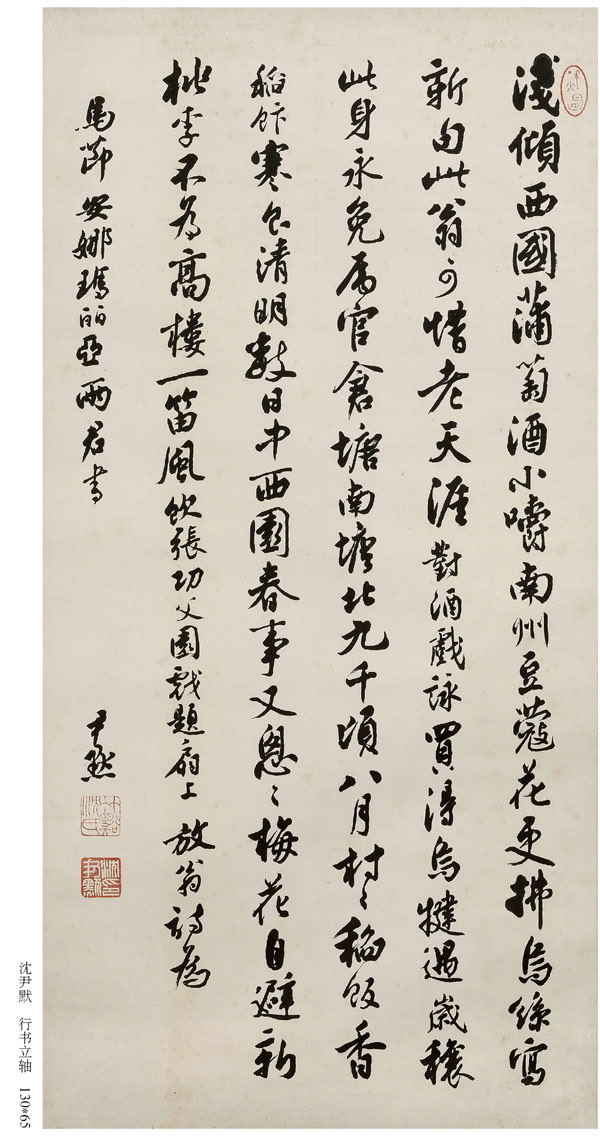 淺傾西國蒲萄酒小嚼南州豆蔻花更拂烏絲寫
新句此翁可惜老天涯 對酒戲詠 買得烏犍遇歲穰
此身永免屬官倉塘南塘北九千頃八月村〻稻飯香
稻飰 寒食清明數日中西園春事又怱〻梅花自避新
桃李不為高樓一笛風 飲張功父園戲題扇上 放翁詩為
馬節安娜瑪丽亞兩君書
尹默
竹谿沈氏
沈尹默 行书立轴 130*65